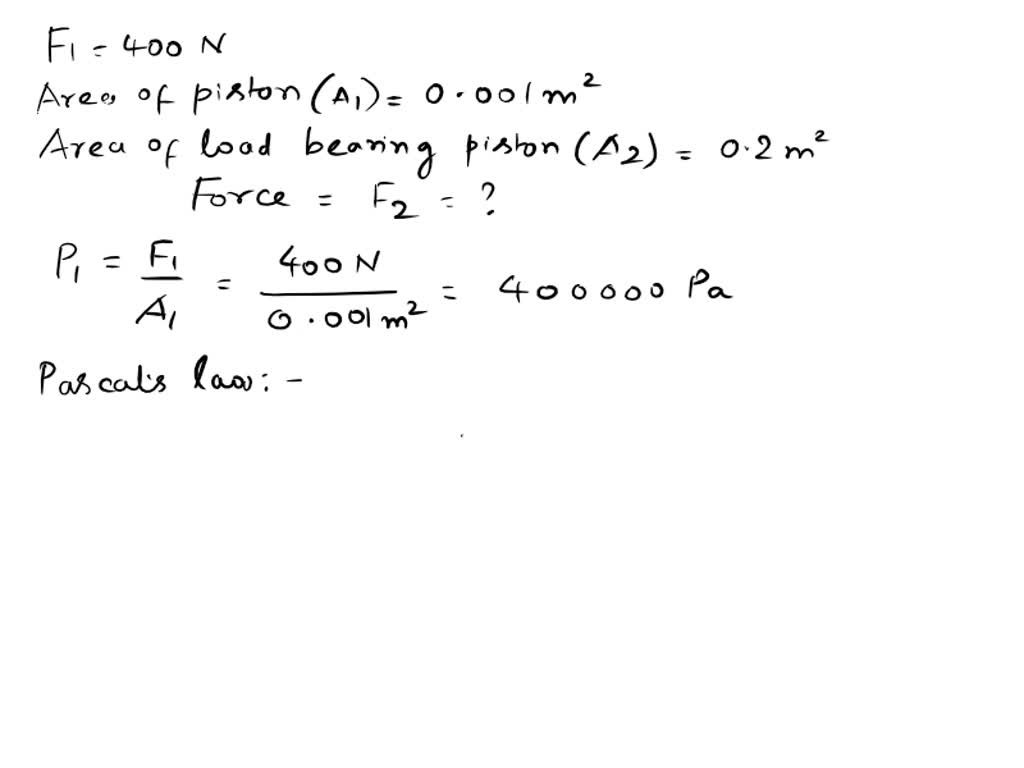 F₁ = 400 N
Area of piston (A₁) = 0.001 m²
Area of load bearing piston (A₂) = 0.2 m²
Force = F₂ = ?
P₁ = F₁/A₁ = 400 N/0.001 m² = 400000 Pa
Pascal's law: -